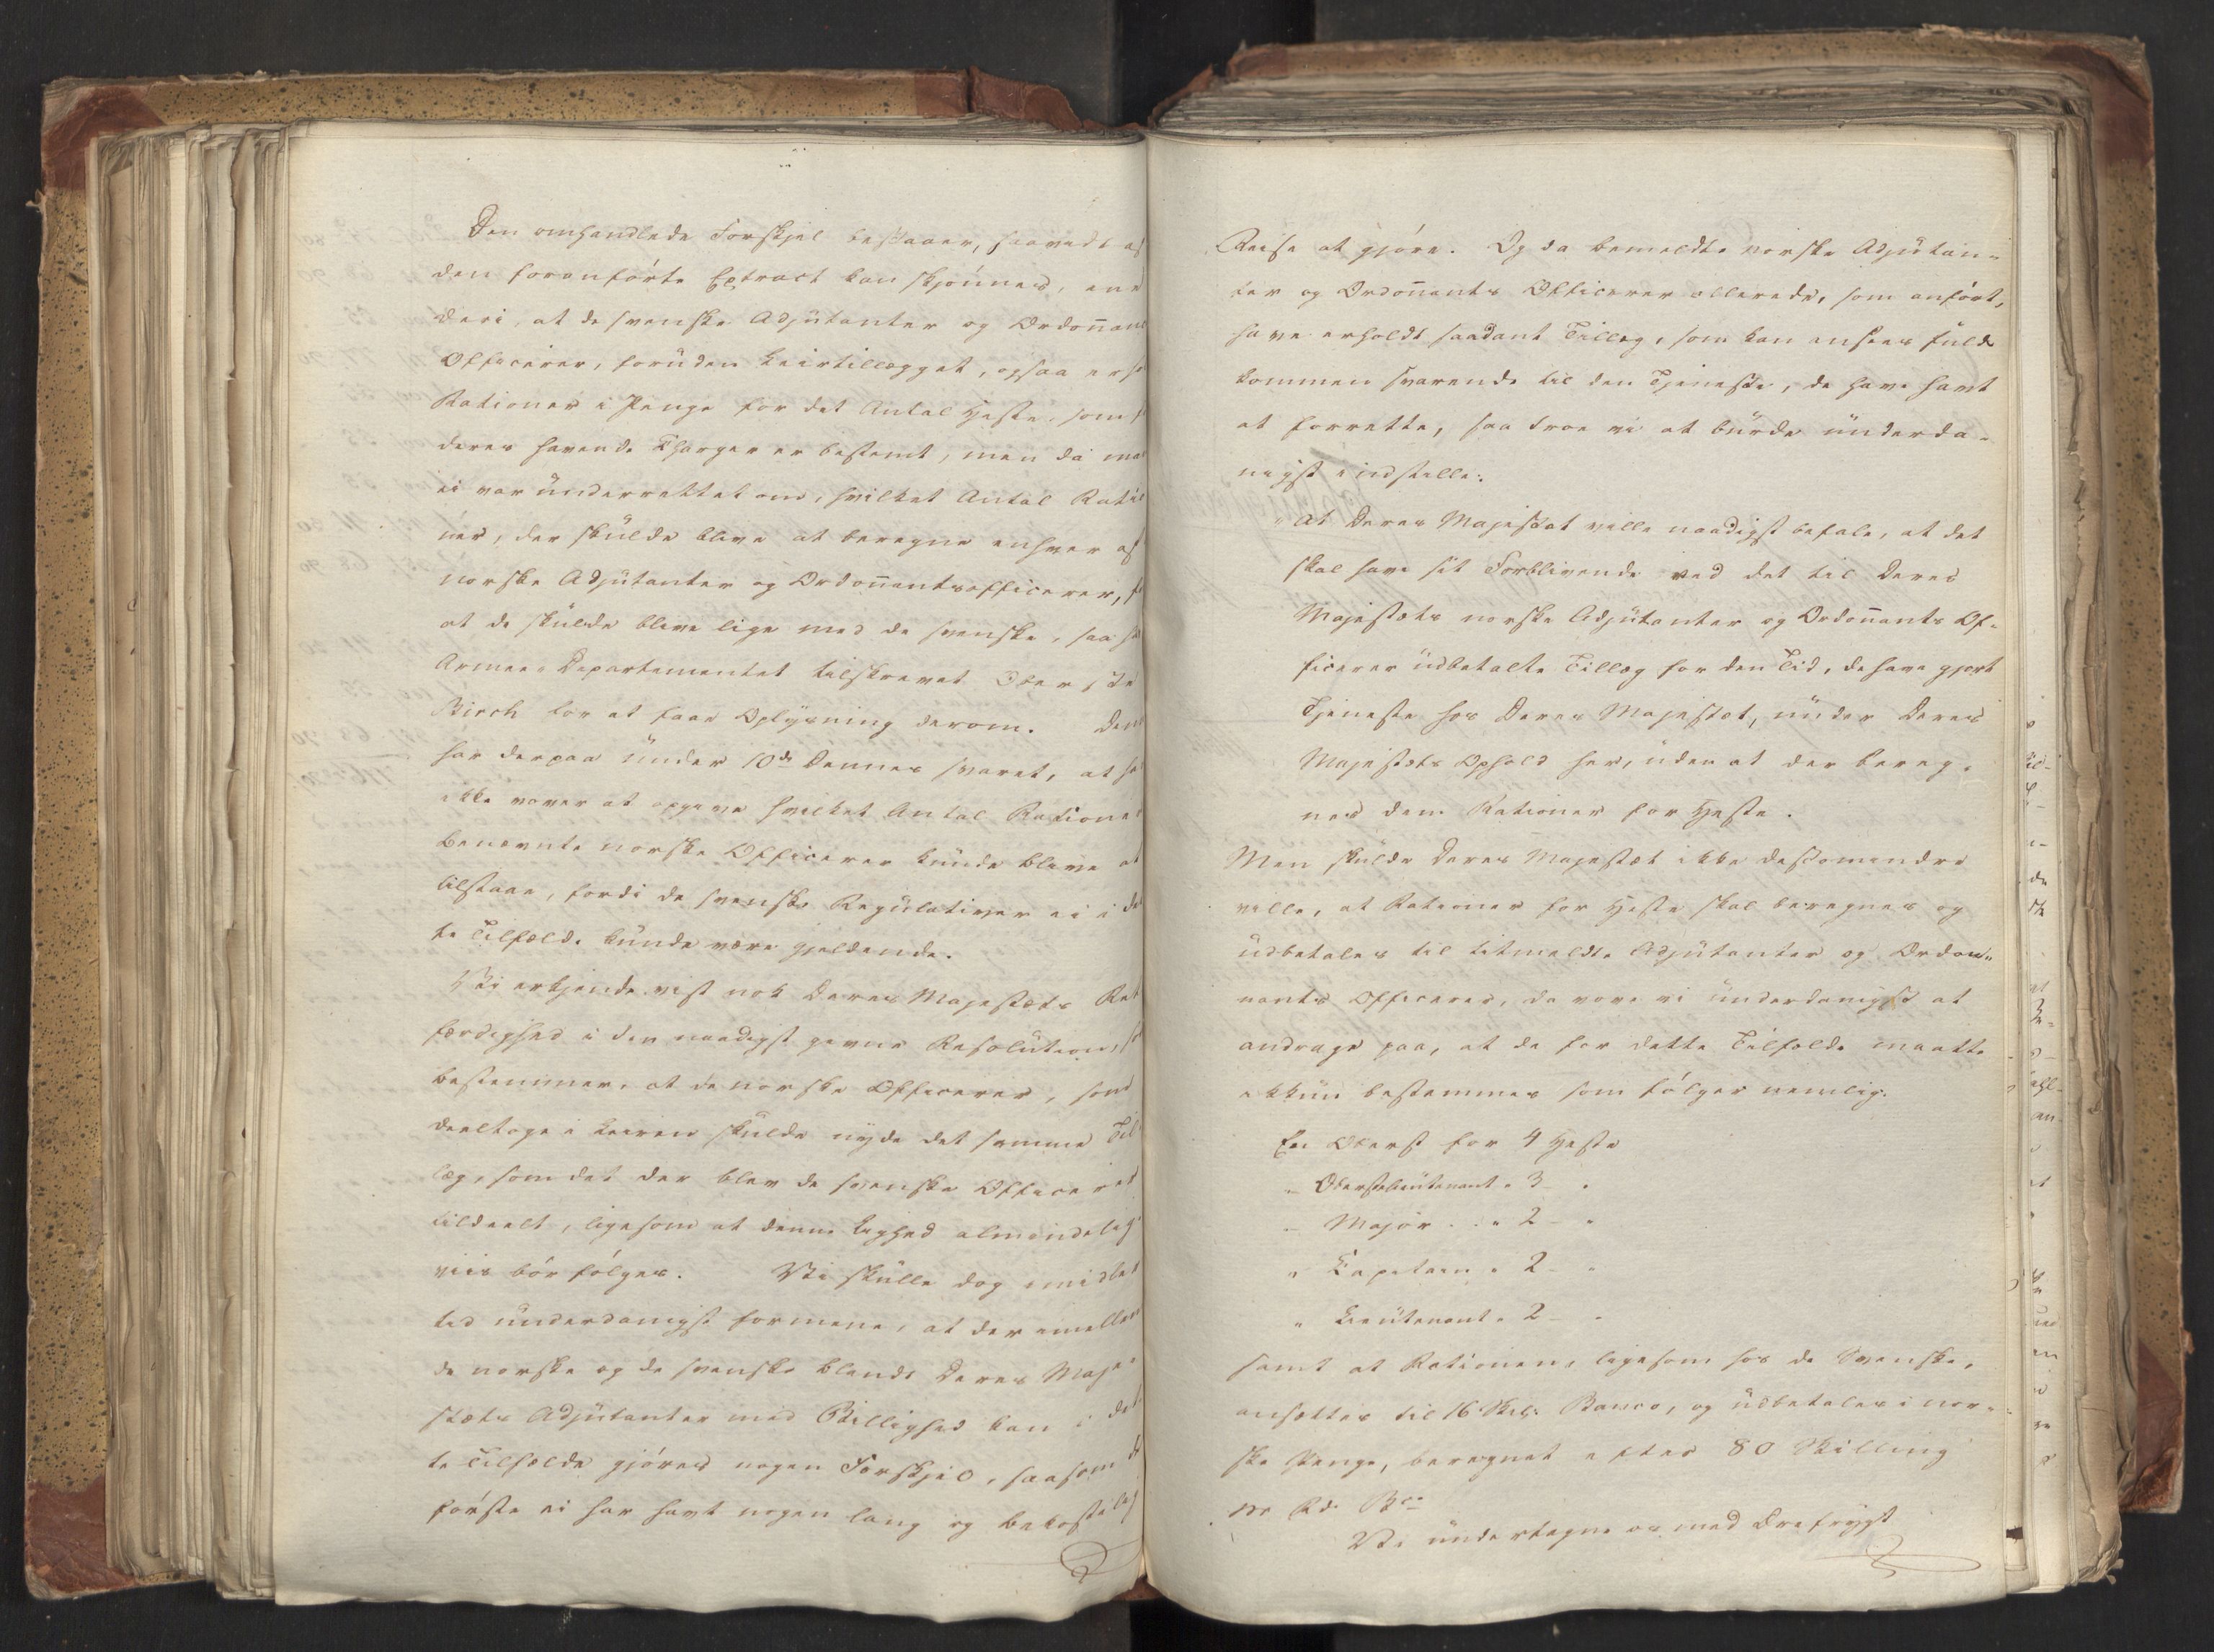 Den omhandlede Forskjel bestaaer, saavidt af
den foranførte Extract kan skjønnes, ene
deri, at de svenske Adjutanter og Ordonnants
Officerer, foruden Leirtillægget, ogsaa erh
Rationer i Penge for det Antal Heste, som f
deres havende Charger er bestemt, men da ma
ei var underrettet om, hvilket Antal Ratio
ner, der skulde blive at beregne enhver af
norske Adjutanter og Ordonnantsofficerer, f
at de skulde blive lige med de svenske, saa h
Armee-Departementet tilskrevet Oberste
Birch for at faae Oplysning derom. Den
har derpaa under 10de Dennes svaret, at h
ikke vover at opgive hvilket Antal Rationer
benævnte norske Officerer kunde blive at
tilstaae, fordi de svenske Regulativer ei i det
te Tilfælde kunde være gjeldende.
Vi erkjende vist nok Deres Majestæts Ret
færdighed i den naadigst givne Resolution,
bestemmer, at de norske Officerer, som
deeltoge i Leiren skulde nyde det samme Til
læg, som det der blev de svenske Officerer
tildeelt, ligesom at denne Liighed almindelig
viis bør følges. Vi skulle dog imidler
tid underdanigst formene, at der imellem
de norske og de svenske blandt Deres Maje
stæts Adjutanter med Billighed kan i det
te Tilfælde gjøres nogen Forskjel, saasom d
første ei har havt nogen lang og bekostelig
Reise at gjøre. Og da bemeldte norske Adjutan-
ter og Ordonnants Officerer allerede, som anført,
have erholdt saadant Tillæg, som kan ansees fuld
kommen svarende til den Tjeneste, de have havt
at forrette, saa troe vi at burde underda-
nigst indstille:
"At Deres Majestæt ville naadigst befale, at det
skal have sit Forblivende ved det til Deres
Majestæts norske Adjutanter og Ordonnants Of-
ficerer udbetalte Tillæg for den Tid, de have gjort
Tjeneste hos Deres Majestæt, under Deres
Majestæts Ophold her, uden at der bereg-
nes dem Rationer for Heste.
Men skulde Deres Majestæt ikke destomindre
ville, at Rationer for Heste skal beregnes og
udbetales til titmeldte Adjutanter og Ordon-
nants Officerer, da vove vi underdanigst at
andrage paa, at de for dette Tilfælde maatte
ikkun bestemmes som følger nemlig:
En Oberst for 4 Heste
" Oberstlieutenant " 3 - "
- Major . . " 2 - "
" Kapitain " 2 - "
" Lieutenant " 2 - "
samt at Rationen, ligesom hos de Svenske,
ansættes til 16 Skil: Banco, og udbetales i nor-
ske Penge, beregnet efter 80 Skilling
pr Rd. Bco
Vi undertegne os med Ærefrygt